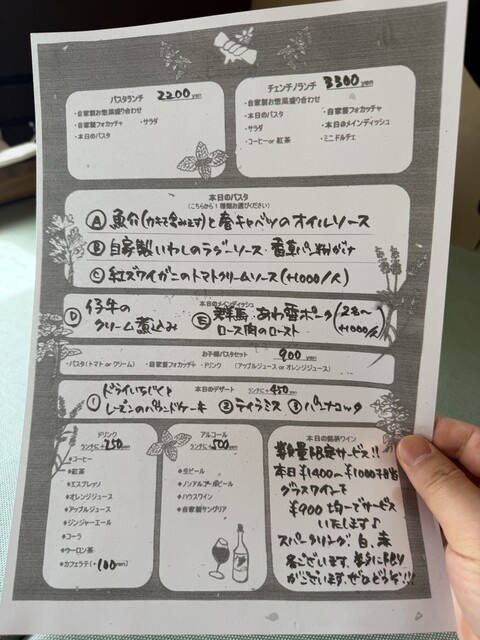 パスタランチ 2200 yen
・自家製お惣菜盛り合わせ
・自家製フォカッチャ ・サラダ
・本日のパスタ
チェンチノランチ 3300 yen
・自家製お惣菜盛り合わせ
・本日のパスタ ・自家製フォカッチャ
・サラダ ・本日のメインディッシュ
・コーヒー or 紅茶 ・ミニドルチェ
本日のパスタ
(こちらから1種類お選びください)
Ⓐ 魚介(カキを含みます)と春キャベツのオイルソース
Ⓑ 自家製いわしのラグーソース 香草パン粉がけ
Ⓒ 紅ズワイガニのトマトクリームソース(+1000/人)
本日のメインディッシュ
Ⓓ 仔牛の
クリーム煮込み
Ⓔ 群馬・あわ香ポーク
ロース肉のロースト
(2名〜
+1000/人)
お子様パスタセット 900 yen
・パスタ(トマト or クリーム) ・自家製フォカッチャ ・ドリンク (アップルジュース or オレンジジュース)
本日のデザート ランチに+450 yen
① ドライいちじくと
レーズンのパウンドケーキ ② ティラミス ③ パンナコッタ
ドリンク
ランチに+250 yen
●コーヒー
●紅茶
●エスプレッソ
●オレンジジュース
●アップルジュース
●ジンジャーエール
●コーラ
●ウーロン茶
●カフェラテ(+100yen)
アルコール
ランチに+500 yen
●生ビール
●ノンアルコールビール
●ハウスワイン
●自家製サングリア
本日の銘茶ワイン
数量限定サービス!!
本日¥1400〜¥1000相当
グラスワインを
¥900均一でサービス
いたします♪
スパークリング 白、赤
ございます。数に限り
がございます。ぜひどうぞ!!!